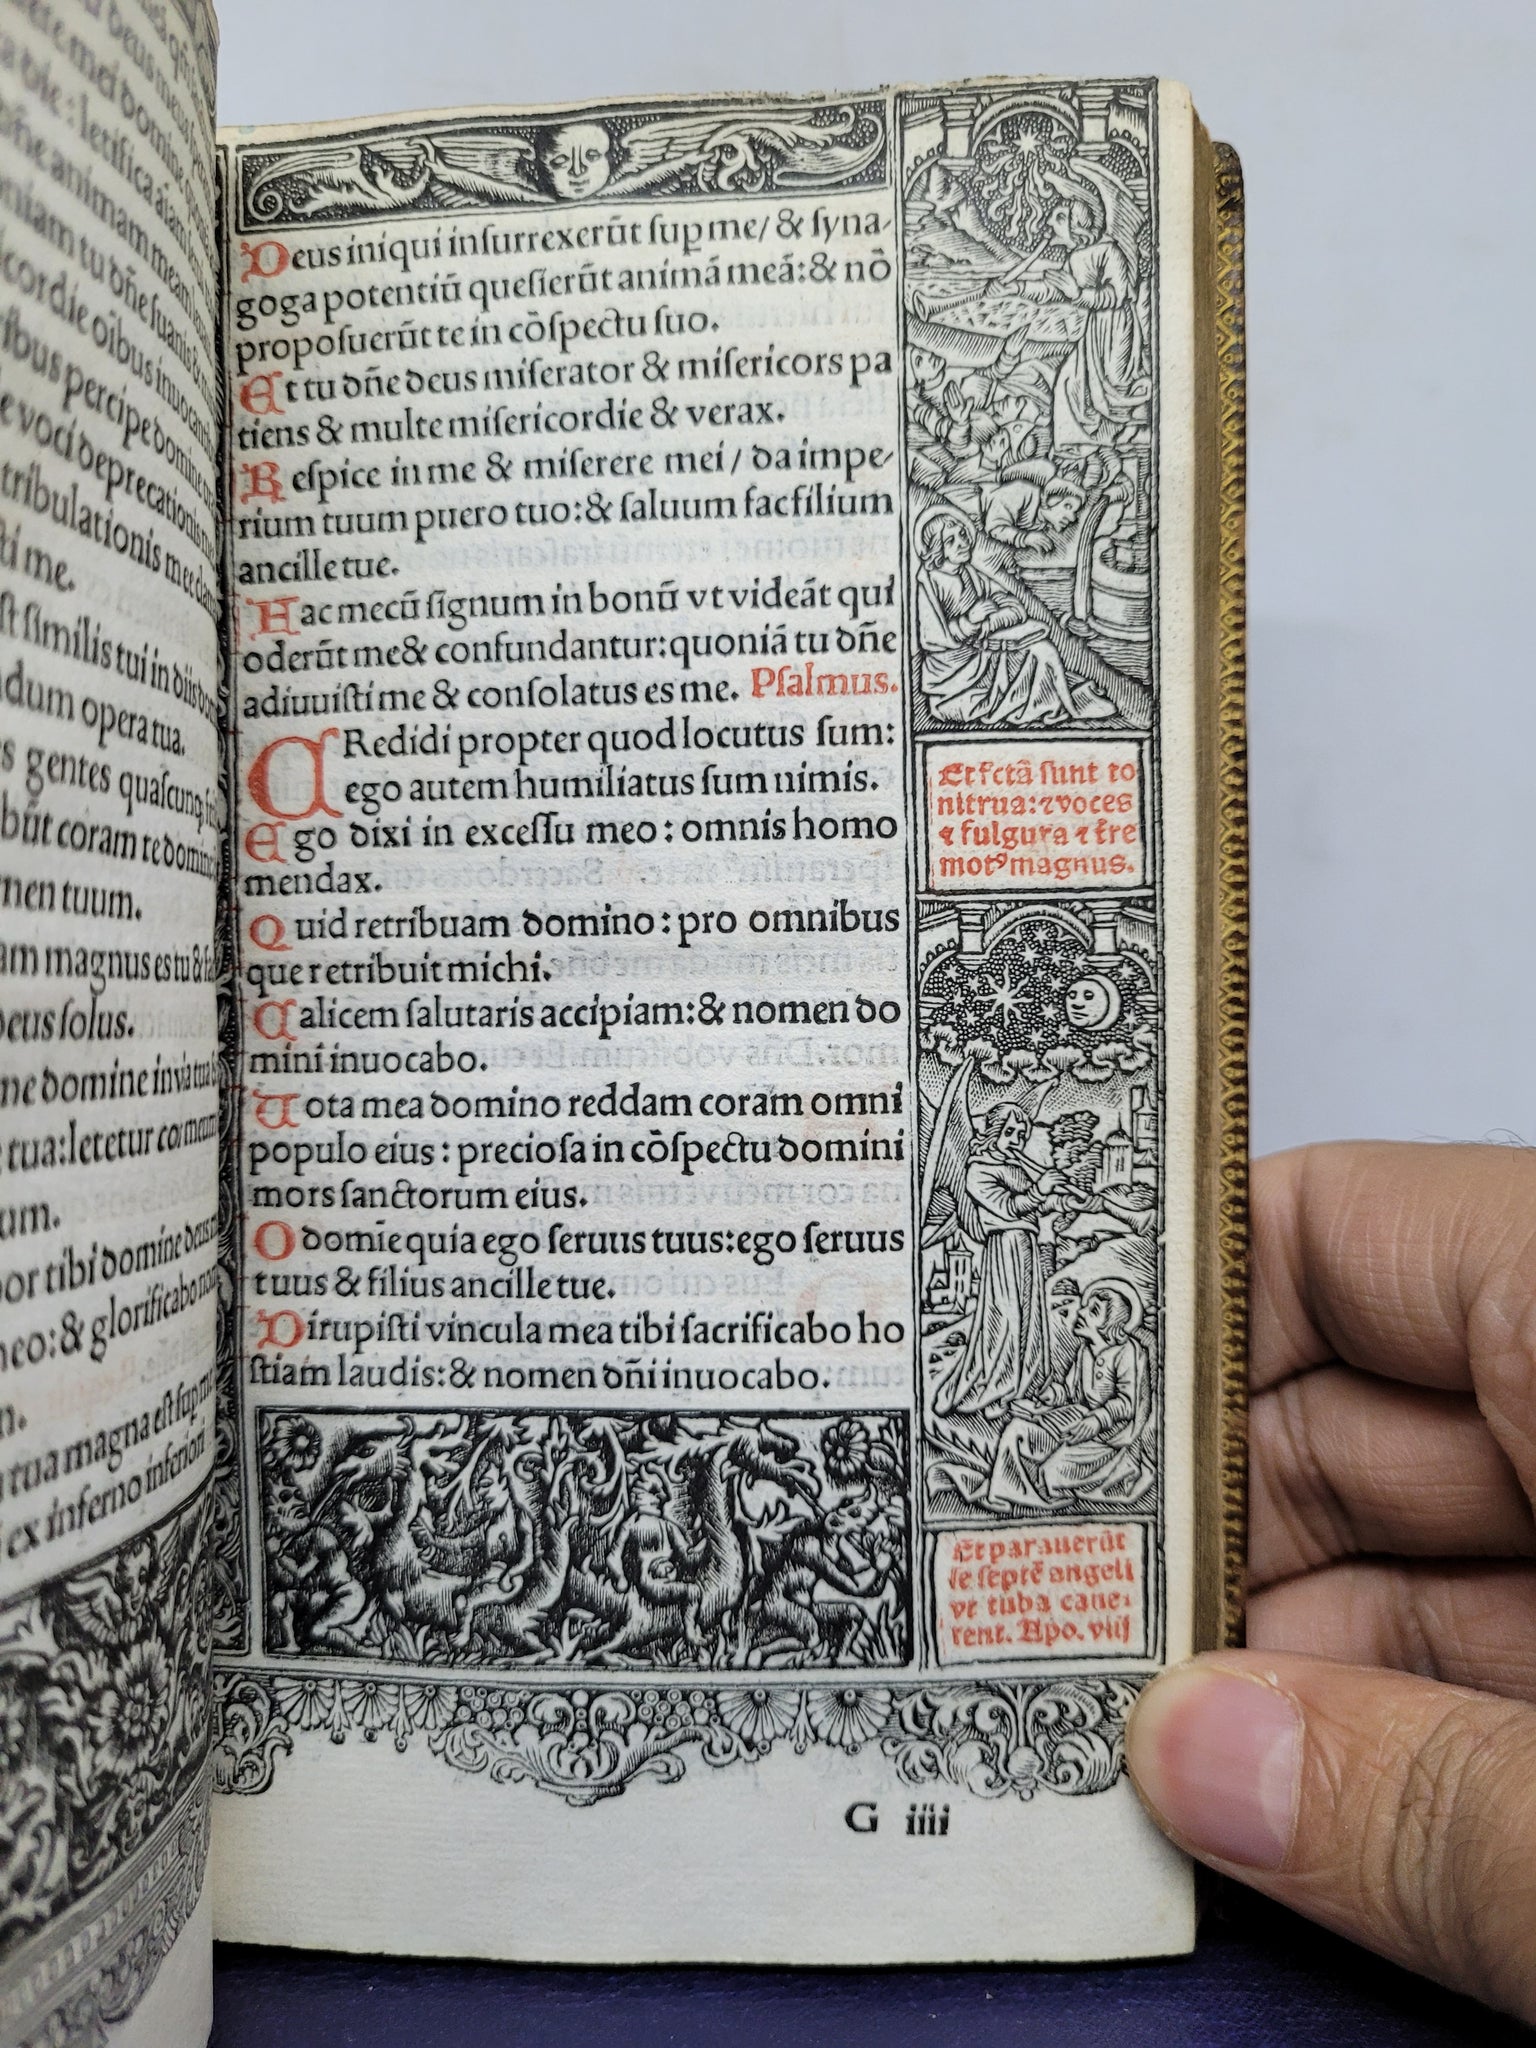 Deus iniqui inſurrexerūt ſuꝑ me/ & ſyna-
goga potentiū queſierūt animā meā: & nō
propoſuerūt te in cōſpectu ſuo.
Et tu dn̄e deus miſerator & miſericors pa
tiens & multe miſericordie & verax.
Reſpice in me & miſerere mei / da impe-
rium tuum puero tuo: & ſaluum fac filium
ancille tue.
Hac mecū ſignum in bonū vt videāt qui
oderūt me & confundantur: quoniā tu dn̄e
adiuuiſti me & conſolatus es me. Pſalmus.
CRedidi propter quod locutus ſum:
ego autem humiliatus ſum nimis.
Ego dixi in exceſſu meo: omnis homo
mendax.
Quid retribuam domino: pro omnibus
que retribuit michi.
Calicem ſalutaris accipiam: & nomen do
mini inuocabo.
Uota mea domino reddam coram omni
populo eius: precioſa in cōſpectu domini
mors ſanctorum eius.
O domīe quia ego ſeruus tuus: ego ſeruus
tuus & filius ancille tue.
Dirupiſti vincula mea tibi ſacrificabo ho
ſtiam laudis: & nomen dn̄i inuocabo.
G iiii
Et fctā ſunt to
nitrua: ⁊ voces
⁊ fulgura ⁊ t̄re
motꝰ magnus.
Et parauerūt
ſe ſeptē angeli
vt tuba cane-
rent. Apo. viij
a die: letifica
animam meam
niam tu dn̄e ſuauis &
cordie oībus inuocantib
ribus percipe domine
e voci deprecationis me
tribulationis mee clam
ti me.
ſt ſimilis tui in diis
ndum opera tua.
s gentes quaſcunq
būt coram te domine
men tuum.
am magnus es tu & fa
deus ſolus.
me domine in via tua
tua: letetur cor meum
um.
or tibi domine deus
meo: & glorificabo
n.
tua magna eſt ſup
ex inferno inferiori